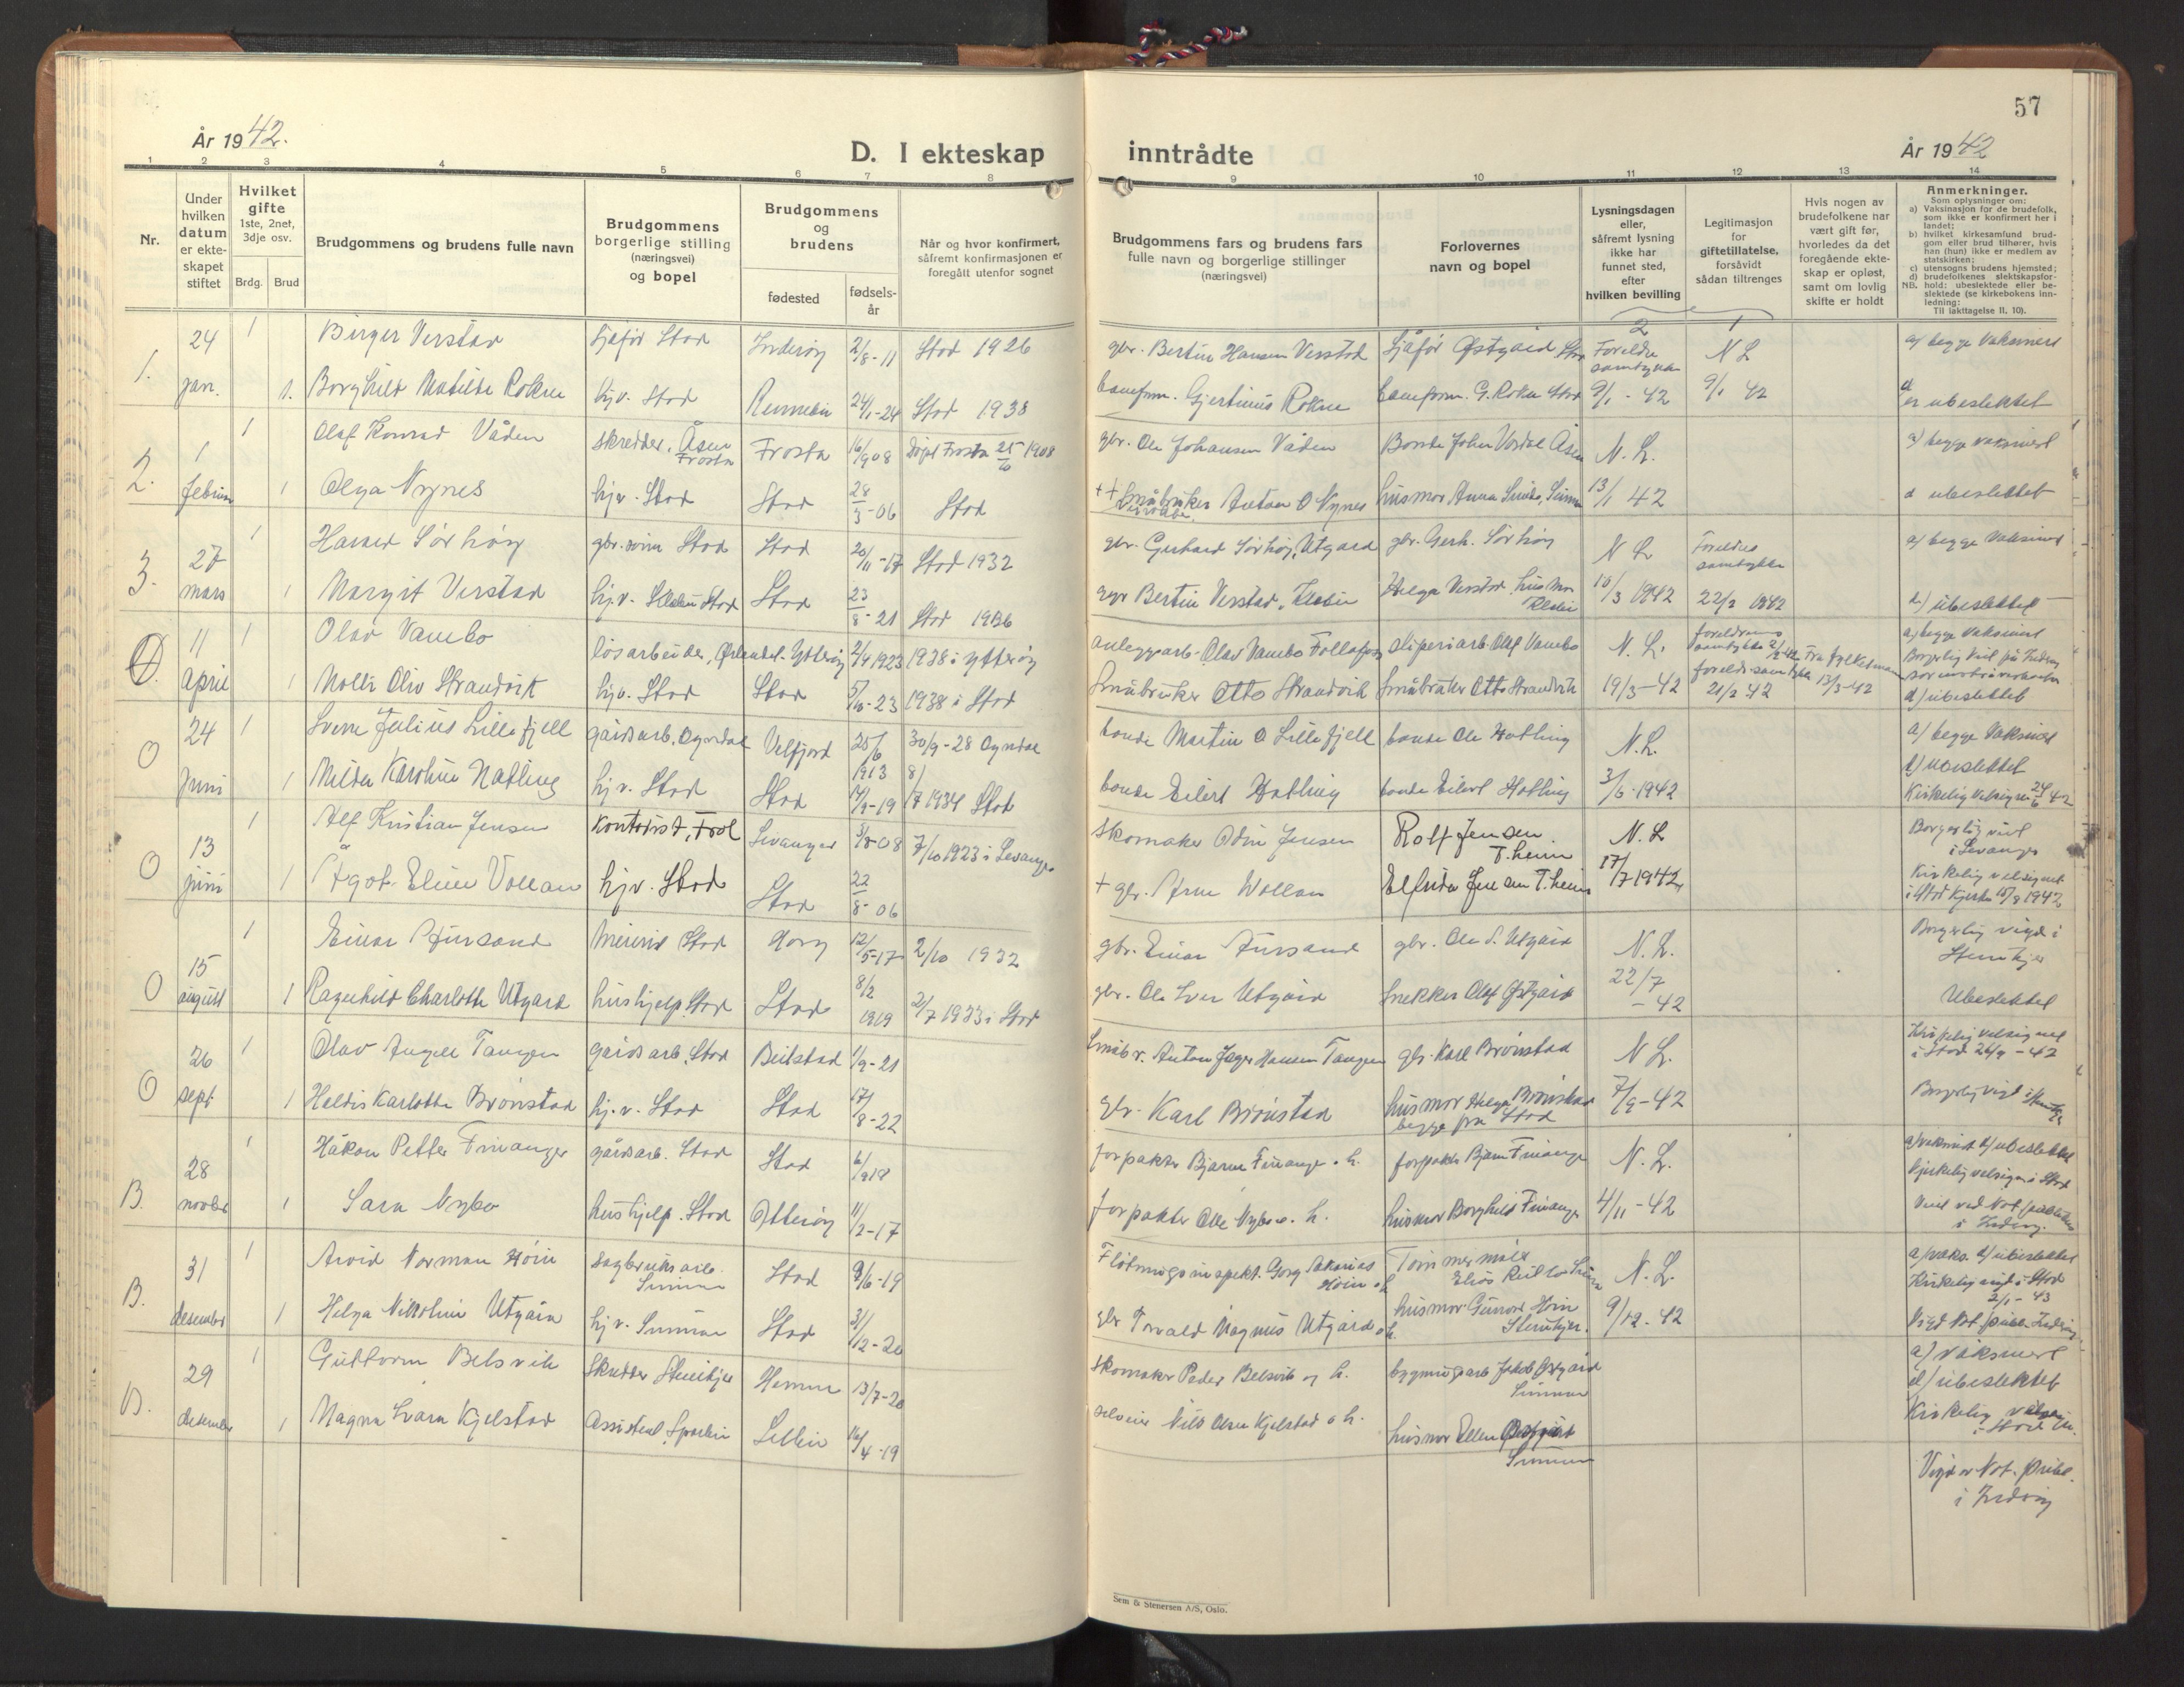 57
År 1942.
D. I ekteskap
inntrådte
År 1942
1 2 3 4 5 6 7 8 9 10 11 12 13 14
Nr.
Under hvilken datum er ekteskapet stiftet
Hvilket gifte 1ste, 2net, 3dje osv.
Brdg. Brud
Brudgommens og brudens fulle navn
Brudgommens borgerlige stilling (næringsvei) og bopel
Brudgommens og brudens
fødested
fødselsår
Når og hvor konfirmert, såfremt konfirmasjonen er foregått utenfor sognet
Brudgommens fars og brudens fars fulle navn og borgerlige stillinger (næringsvei)
Forlovernes navn og bopel
Lysningsdagen eller, såfremt lysning ikke har funnet sted, efter hvilken bevilling
Legitimasjon for giftetillatelse, forsåvidt sådan tiltrenges
Hvis nogen av brudefolkene har vært gift før, hvorledes da det foregående ekteskap er opløst, samt om lovlig skifte er holdt
Anmerkninger.
Som oplysninger om:
a) Vaksinasjon for de brudefolk, som ikke er konfirmert her i landet;
b) hvilket kirkesamfund brudgom eller brud tilhører, hvis han (hun) ikke er medlem av statskirken;
c) utensogns brudens hjemsted;
d) brudefolkenes slektskapsforhold: ubeslektede eller beslektede (se kirkebokens innledning:
NB.
Til iakttagelse II, 10).
1. 24 1 Birger Verstad sjåfør Stod Inderøy 2/8-11 Stod 1926 gbr. Bertin Hansen Verstad Sjåfør Østgård Stod Foreldre samtykke N L a) begge vaksinert
jan. 1. Borghild Matilde Rokne hj.v. Stod 24/1-24 Stod 1938 banefm. Gjertinus Rokne baneform. G. Rokne Stod 9/1-42 9/1 42 d er ubeslektet
2. 1 1 Olaf Konrad Våden skredder, Åsen Frosta Frosta 16/9 08 gbr. Ole Johansen Våden Bonde John Vordal Åsen N. L. a) begge vaksinert
februar 1 Olga Nynes hjv. Stod Stod 28/3-06 Stod ++ Småbruker Anton O Nynes husmor Anna 13/1 42 d ubeslektet
3. 27 1 Sørhøy gbr. sønn Stod Stod 20/11-17 Stod 1932 gbr. Gerhard Sørhøy, Utgård gbr. Gerh. Sørhøy N L Foreldres samtykke a) begge vaksinert
mars 1 Margit Verstad hj.v. Stod Stod 23/8-21 Stod 1936 gbr Bertin Verstad, Helga Verstad, husmor 10/3 1942 22/2 1942 d) ubeslektet
4. 11 1 Olav Vambo løsarbeider, Ytterøy 2/4 1923 1938 i Ytterøy anleggarb. Olav Vambo Follafoss sliperiarb. Olaf Vambo N. L. foreldrenes samtykke Fra fylkesmann 13/3-42 a) begge vaksinert
april 1 Molli Oliv Strandvik hjv. Stod Stod 5/10-23 1938 i Stod Småbruker Otto Strandvik Småbruker Otto Strandvik 19/3-42 foreldr. samtykke 21/2 42 d) ubeslektet
O 24 1 Sverre Julius Lillefjell gårdsarb. Ogndal Velfjord 25/6 1913 30/9-28 Ogndal bonde Martin O Lillefjell bonde Ole Hatling N. L. a) begge vaksinert
juni 1 Milda Karoline Hatling hj.v. Stod Stod 14/9-19 8/7 1934 Stod bonde Eilert Hatling bonde Eilert Hatling 3/6-1942 d) ubeslektet
Kirkelig velsignet 24/6 42
O 13 1 Alf Kristian Jensen Kontorist, Frol Levanger 08 7/10 1923 i Levanger Skomaker Odin Jensen Rolf Jensen T.heim N. L Borgerlig viet i Levanger
juni 1 Ågot Eline Vollan hjv. Stod Stod 22/8-06 + gbr. Arne Wollan Elfrida Jensen T.heim 17/7 1942 Kirkelig velsignet i Stod kjerke 15/8 1942
O 15 1 Einar Aursand meierist Stod 12/5-17 2/10 1932 gbr. Einar Aursand gbr. Ole S. Utgård N. L. Borgerlig vigd i Steinkjer
august 1 Ragnhild Charlotte Utgård hushjelp. Stod Stod 8/2 1919 2/7 1933 i Stod gbr. Ole Iver Utgård Snekker Olaf Østgård 22/7-42 Ubeslektet
O 26 1 Olav Angell Tangen gårdsarb. Stod Beitstad 1/9-21 Småbr. Anton Jager Hansen Tangen gbr. Karl Brønstad N L. Kirkelig velsignet i Stod 26/9-42
sept 1 Heldis Karlotte Brønstad hj.v. Stod Stod 17/8-22 gbr. Karl Brønstad husmor Helga Brønstad begge fra Stod 7/9-42 Borgerlig vigd i Steinkjer
B. 28 1 Håkon Petter Finanger gårdsarb. Stod Stod 6/9 18 forpakter Bjarne Finanger o. h. forpakter Bjarne Finanger N. L. a) vaksinert d) ubeslektet
novbr 1 Sara Nybo hushjelp. Stod Otterøy 11/2-17 forpakter Olle Nybo o. h. husmor Borghild Finanger 4/11-42 kjerkelig velsignet i Stod
Viet ved Not. publicus i Inderøy.
B. 31 1 Arvid Norman Høin sagbruksarb. Sunnan Stod 9/6-19 Fløtningsinspekt. Georg Høin o h Tømmermåler N. L. a) vaks. d) ubeslektet
desember 1 Helga Nikoline Utgård hj v. Sunnan Stod 31/12-20 gbr Torvald Magnus Utgård o h. husmor Gunvor Høin Steinkjer. 9/12-42 Kirkelig vigd i Stod 2/1-43
Vigd Not. publ. Inderøy.
B. 29 1 Guttorm Belsvik Skredder Steinkjer Hemne 13/7-20 Skomaker Peder Belsvik og h. bygningsarb Jakob Østgård Sunnan a) vaksinert
desember 1 Magna Svara Kjelstad Assistent 16/4-19 selveier Nils Olsen Kjelstad o h. husmor Ellen Østgård Sunnan d) ubeslektet
Kirkelig i Stod
Vigd av Not. publ. i Inderøy
Sem & Stenersen A/S, Oslo.